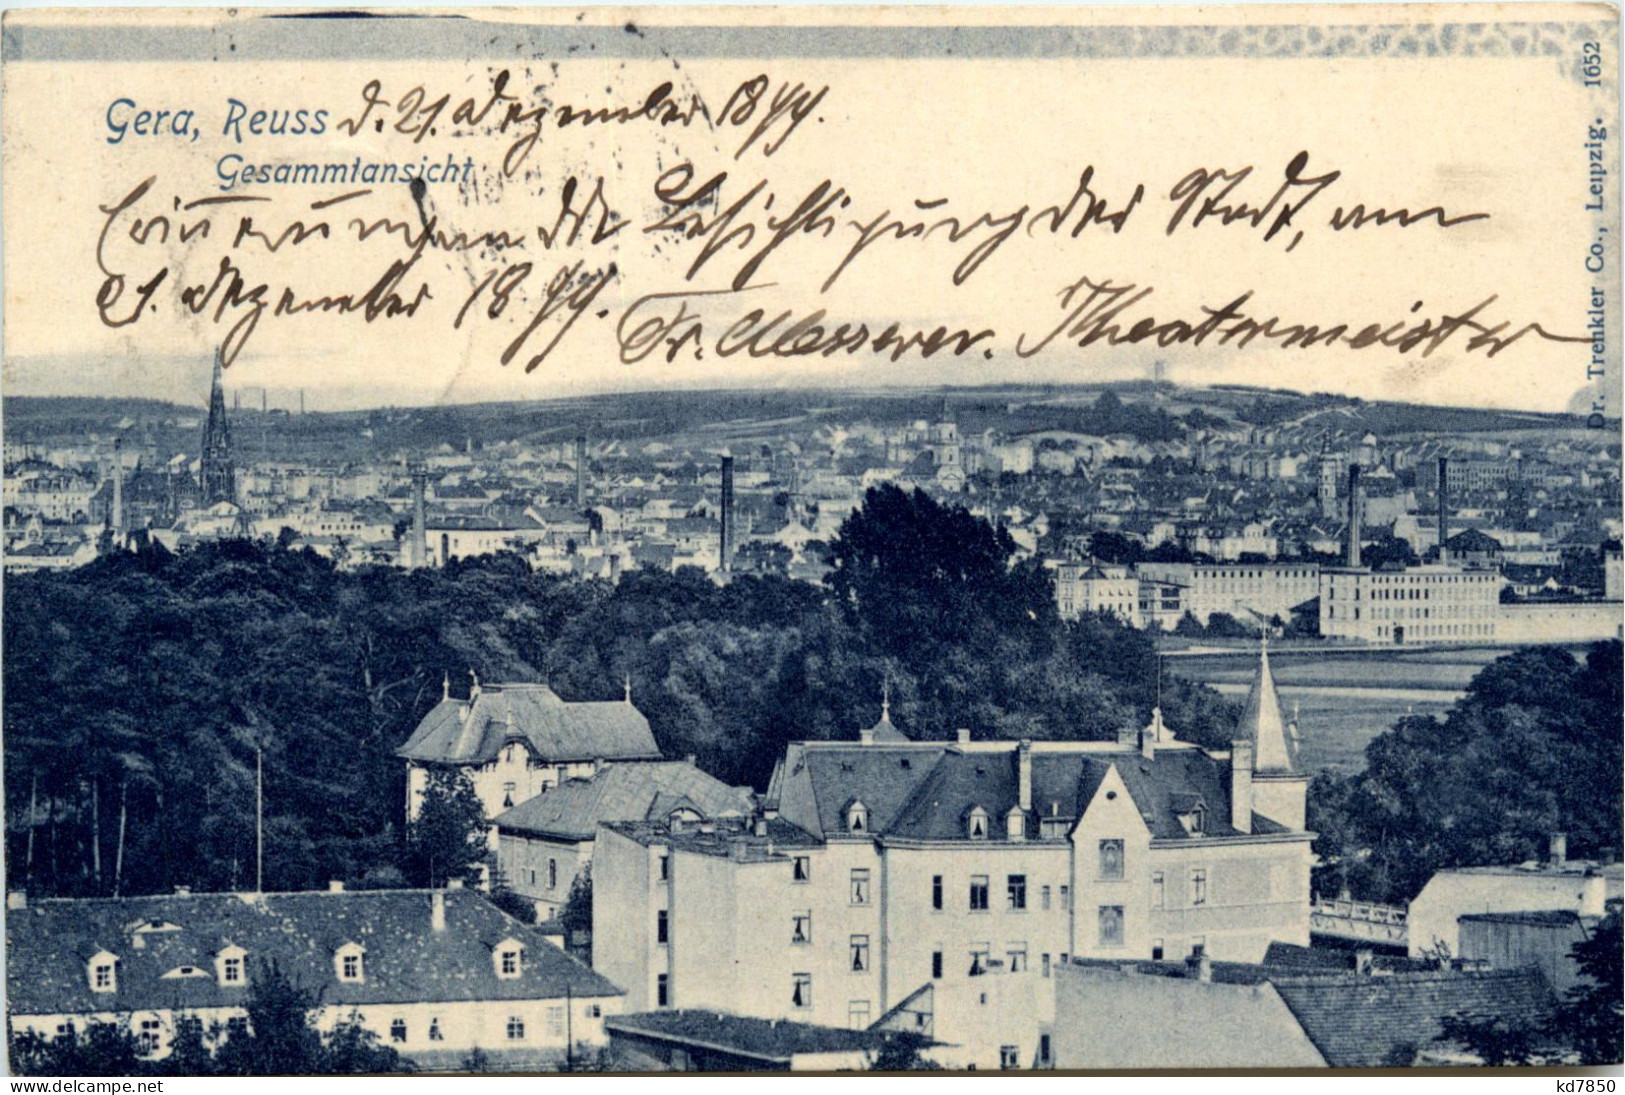 Gera, Reuss d. 21. Dezember 1899.
Gesammtansicht
Erinnerung an die Besichtigung der Stadt, am
21. Dezember 1899. Fr. Messerer. Theatermeister
Dr. Trenkler Co., Leipzig. 1652
delcampe.net
kd7850